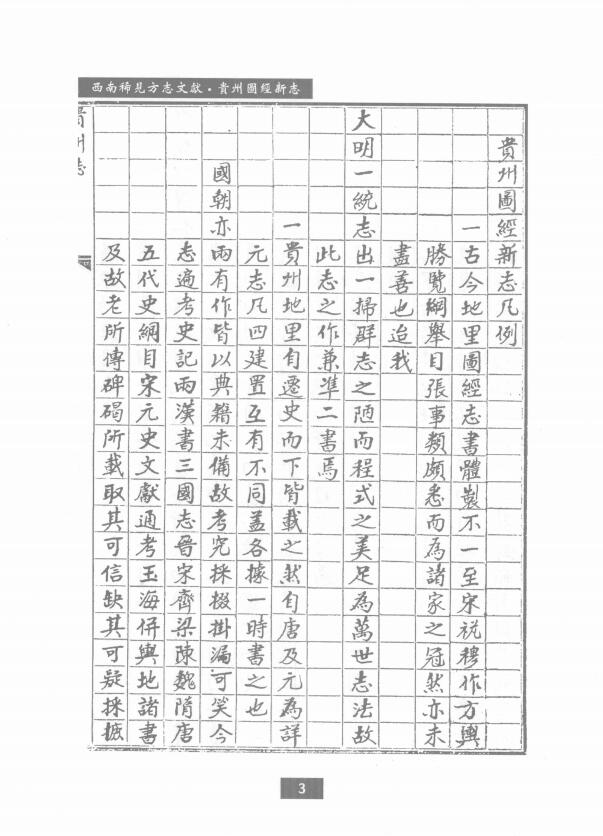 西南稀見方志文獻·貴州圖經新志
貴州圖經新志凡例
一古今地里圖經志書體製不一至宋祝穆作方輿
勝覽綱舉目張事類頗悉而為諸家之冠然亦未
盡善也迨我
大明一統志出一掃群志之陋而程式之美足為萬世志法故
此志之作兼準二書焉
一貴州地里自遷史而下皆載之然自唐及元為詳
元志凡四建置互有不同蓋各據一時書之也
國朝亦兩有作皆以典籍未備故考究採掇掛漏可笑今
志遍考史記兩漢書三國志晉宋齊梁陳魏隋唐
五代史綱目宋元史文獻通考玉海併輿地諸書
及故老所傳碑碣所載取其可信缺其可疑採摭
貴州志
3